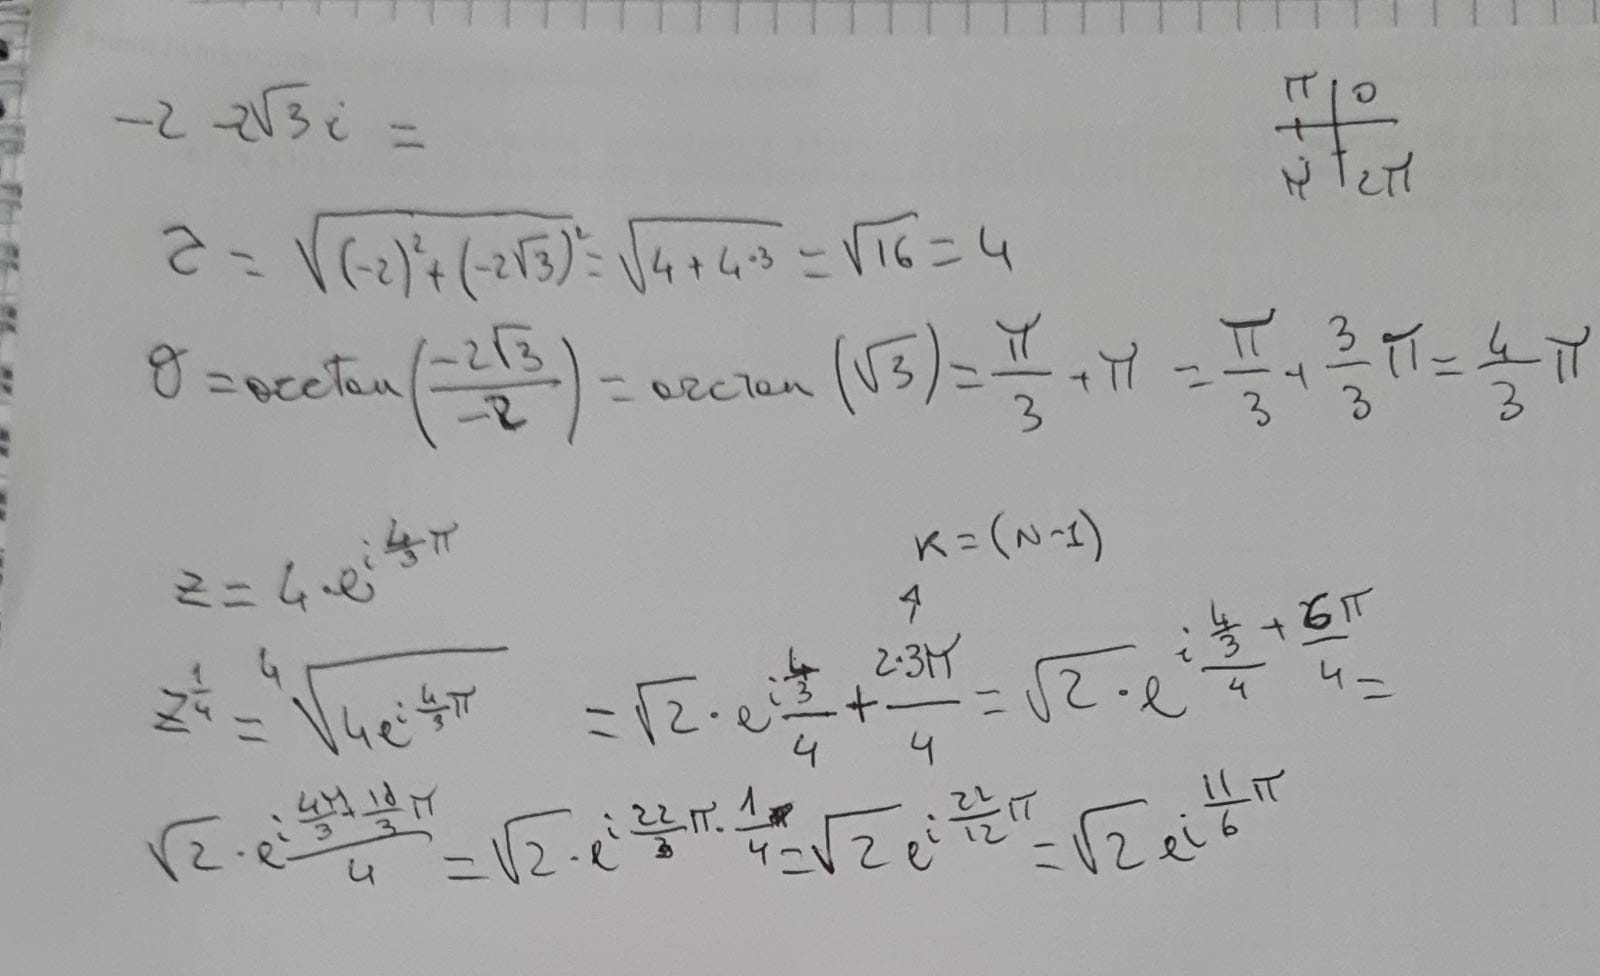 -2 -2√3 i =
π | 0
π | 2π
z = √((-2)² + (-2√3)²) = √(4 + 4·3) = √16 = 4
θ = arctan(-2√3/-2) = arctan(√3) = π/3 + π = π/3 + 3/3 π = 4/3 π
K = (N-1)
z = 4·e^(i 4/3 π)
z^(1/4) = ⁴√(4e^(i 4/3 π)) = √2 · e^(i (4/3)/4 + 2·3π/4) = √2 · e^(i (4/3)/4 + 6π/4) =
√2 · e^(i (4π/3 + 18/3 π)/4) = √2 · e^(i 22/3 π · 1/4) = √2 e^(i 22/12 π) = √2 e^(i 11/6 π)